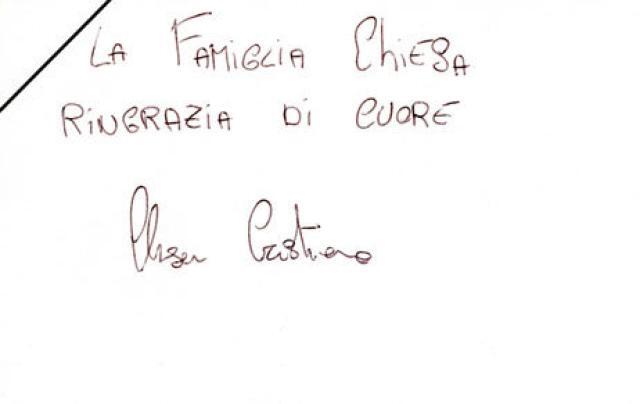 LA FAMIGLIA CHIESA
RINGRAZIA DI CUORE
Chiesa Cristiano